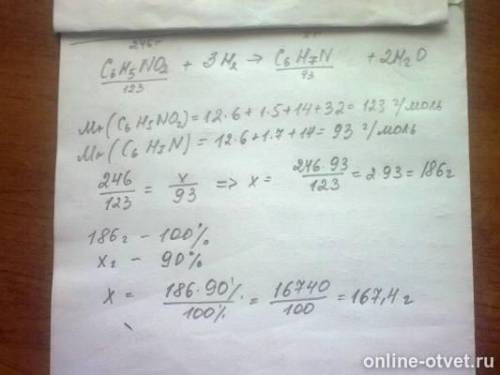 246г
C₆H₅NO₂ + 3H₂ → C₆H₇N + 2H₂O
123 93
Mr(C₆H₅NO₂) = 12·6+1·5+14+32 = 123 г/моль
Mr(C₆H₇N) = 12·6+1·7+14 = 93 г/моль
246/123 = x/93 => x = 246·93/123 = 2·93 = 186г
186г – 100%
xг – 90%
x = 186·90%/100% = 16740/100 = 167,4 г
online-otvet.ru